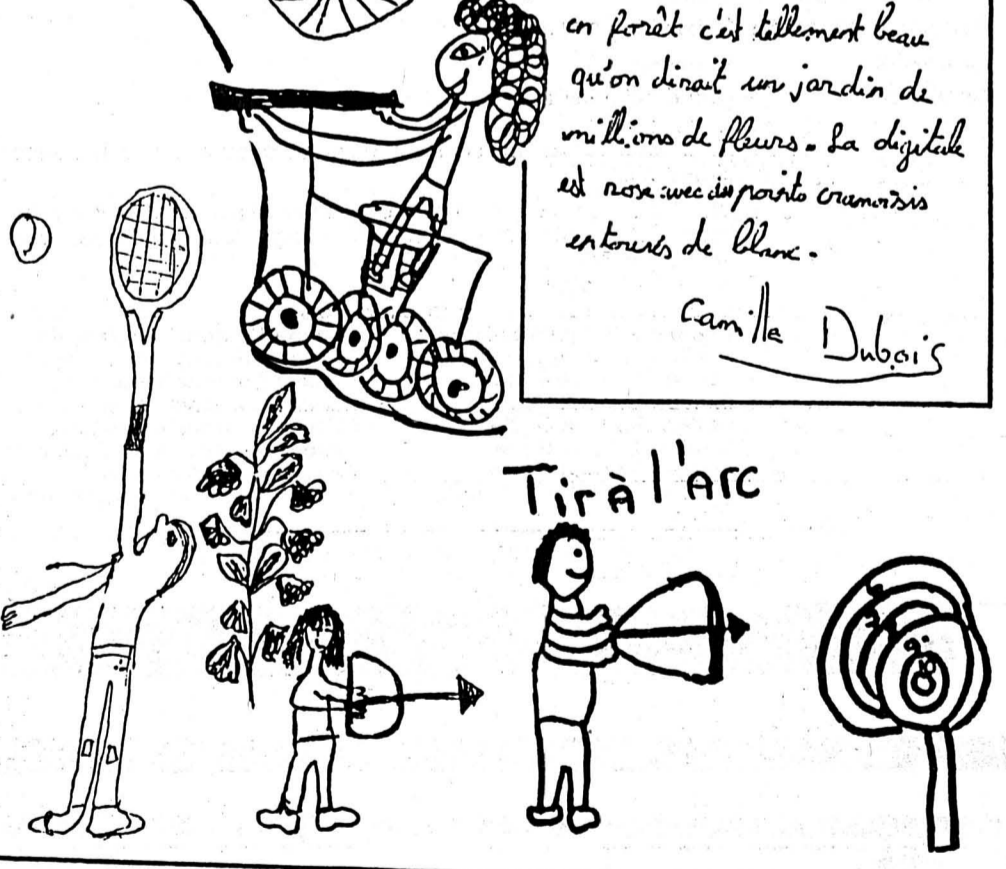 en forêt c'est tellement beau
qu'on dirait un jardin de
millions de fleurs. La digitale
est rose avec des points cramoisis
entourés de blanc.
Camille Dubois
Tir à l'Arc